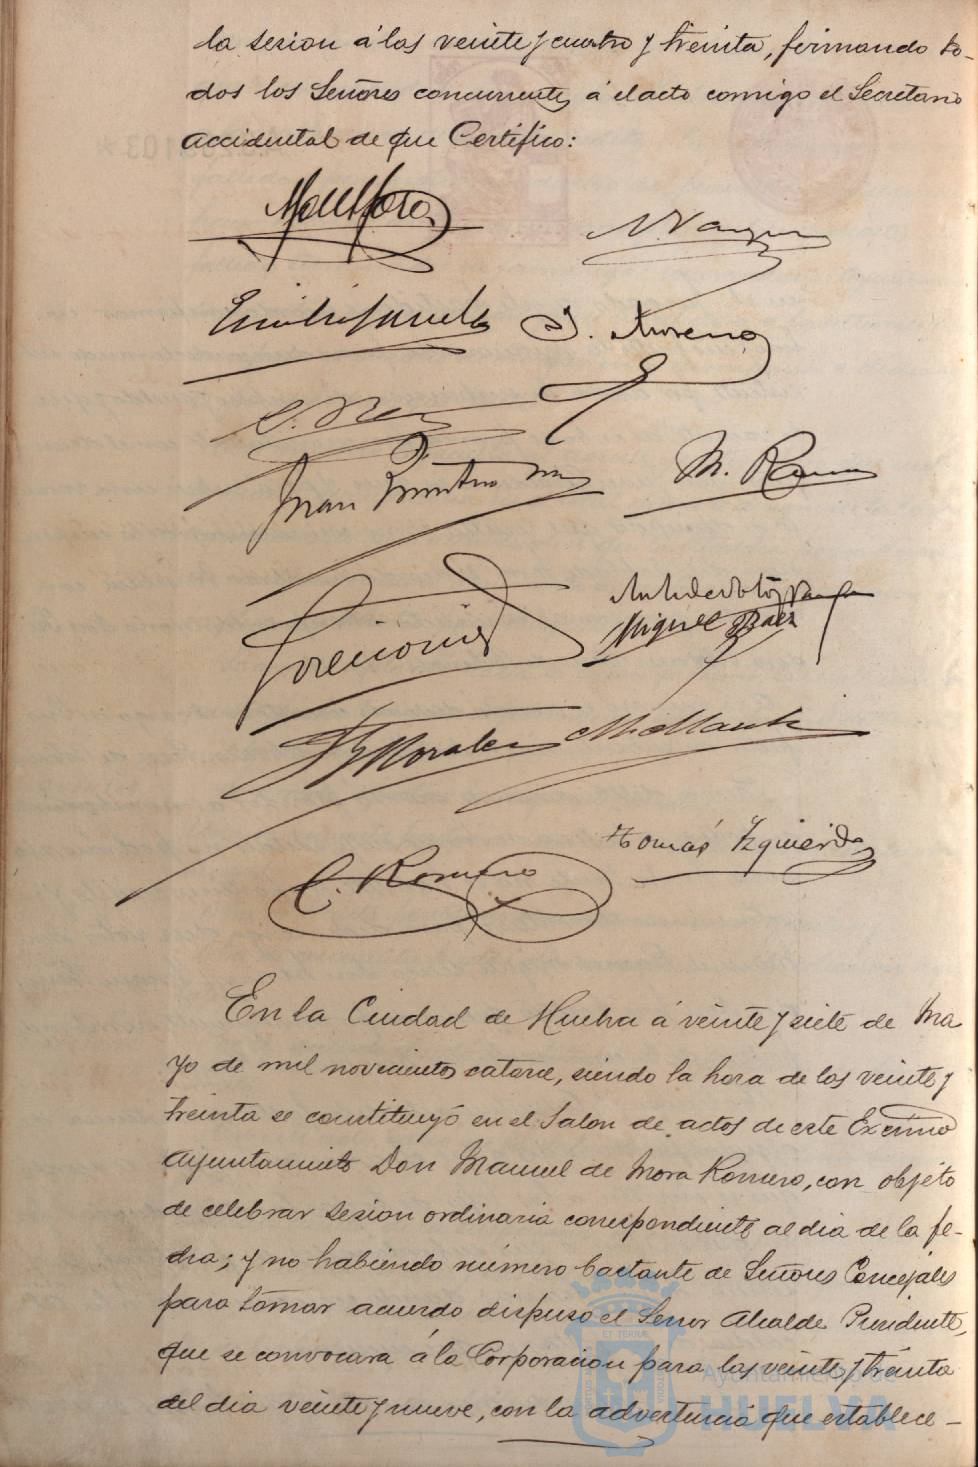 la sesion á las veinte y cuatro y treinta, firmando to-
dos los Señores concurrentes á el acto conmigo el Secretario
accidental de que Certifico:
M. de Mora
J. Moreno
Juan Quintero
M. R
Miguel Baez
F. Morales
Tomás Izquierdo
C. Romero
En la Ciudad de Huelva á veinte y siete de Ma
yo de mil novecientos catorce, siendo la hora de las veinte y
treinta se constituyó en el Salon de actos de este Excmo
Ayuntamiento Don Manuel de Mora Romero, con objeto
de celebrar sesion ordinaria correspondiente al dia de la fe-
cha; y no habiendo número bastante de Señores Concejales
para tomar acuerdo dispuso el Señor Alcalde Presidente,
que se convocara á la Corporacion para las veinte y treinta
del dia veinte y nueve, con la advertencia que establece-
Ayuntamiento de
HUELVA